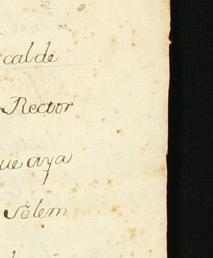 calde
Rector
ue aya
Solem